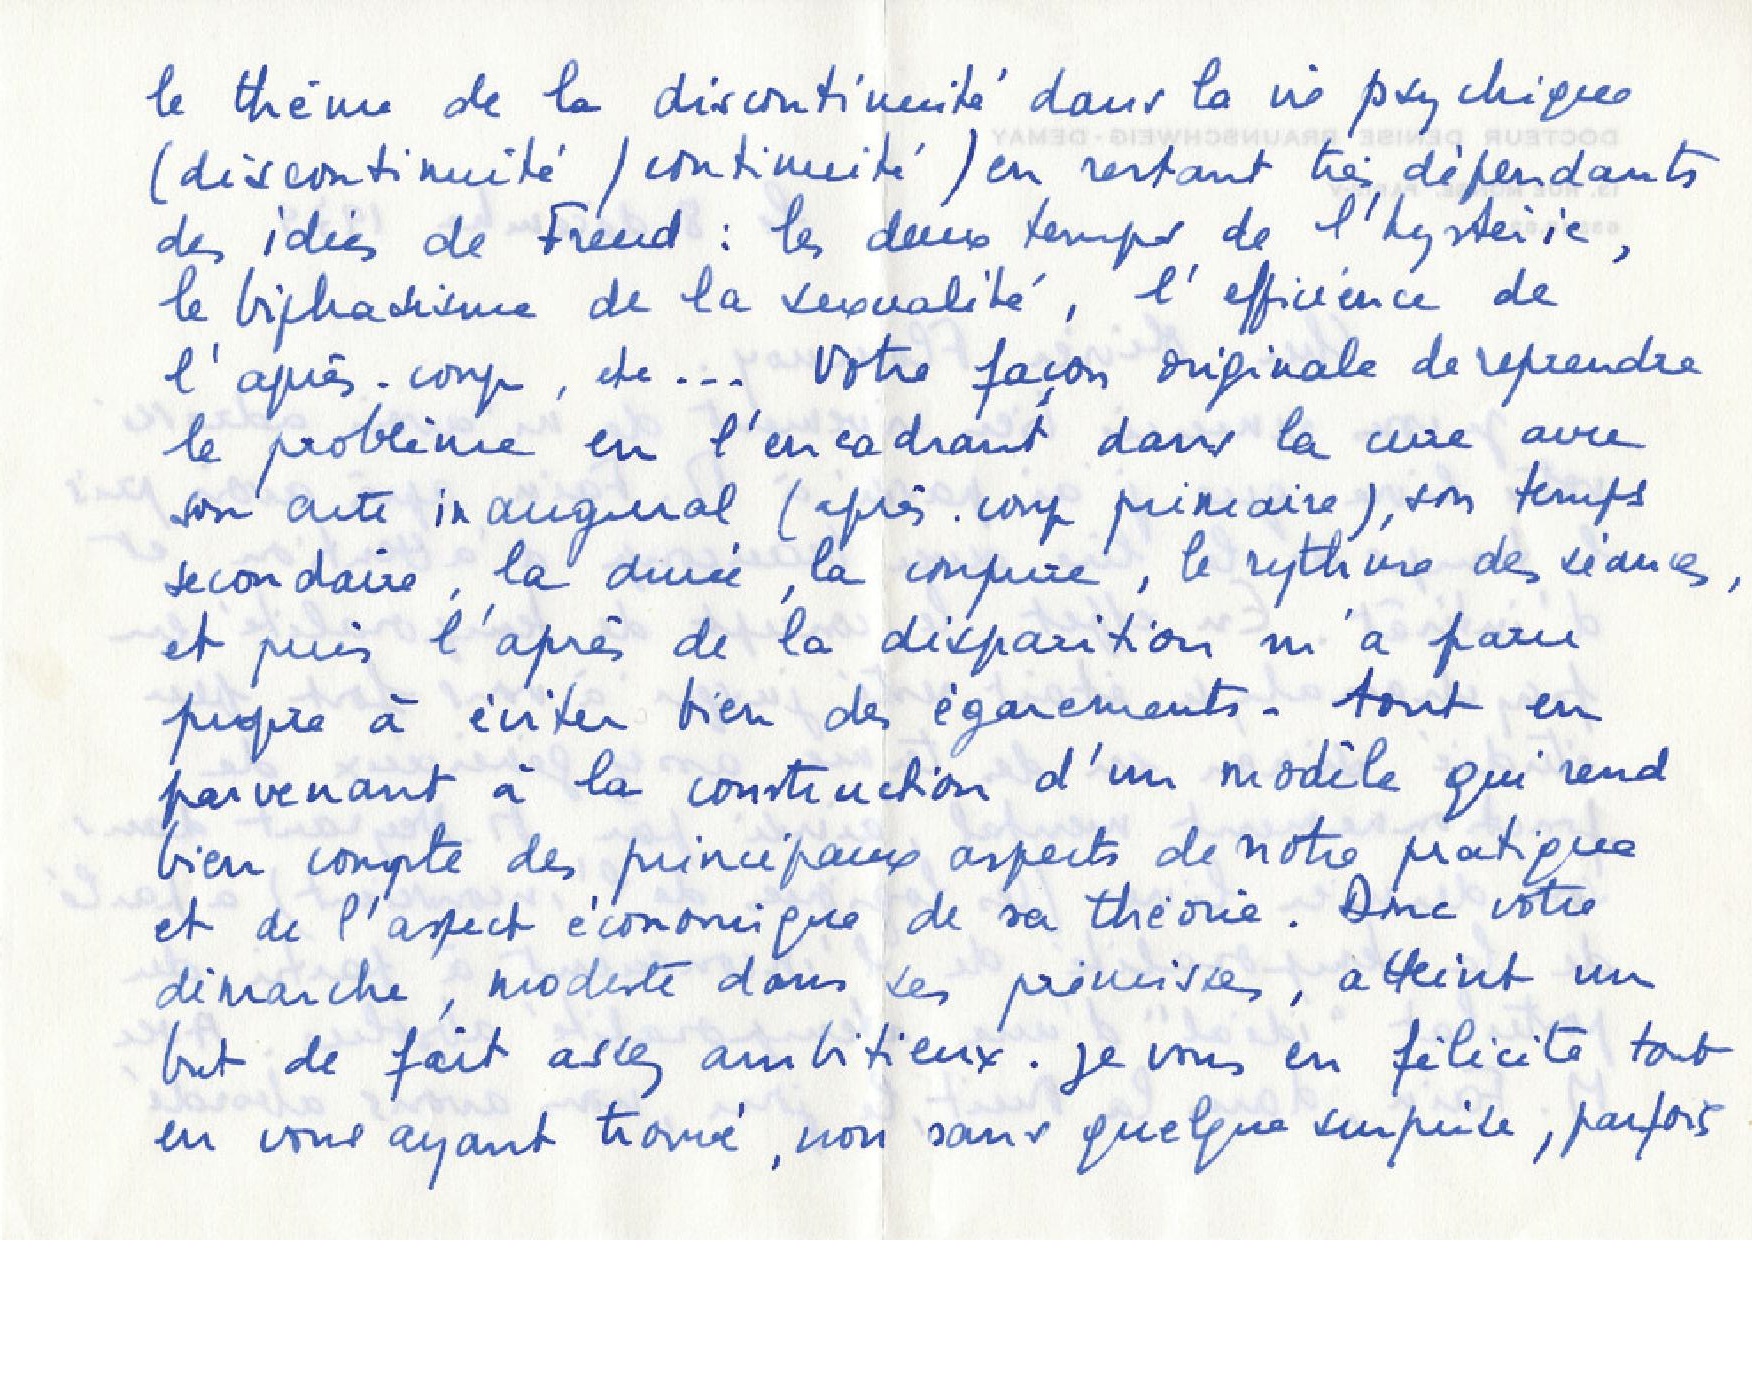 le thème de la discontinuité dans la vie psychique
(discontinuité / continuité) en restant très dépendants
des idées de Freud : les deux temps de l'hystérie,
le biphasisme de la sexualité, l'efficience de
l'après-coup, etc... Votre façon originale de reprendre
le problème en l'encadrant dans la cure avec
son acte inaugural (après-coup primaire), son temps
secondaire, la durée, la coupure, le rythme des séances,
et puis l'après de la disparition m'a paru
propre à éviter bien des égarements - tout en
parvenant à la construction d'un modèle qui rend
bien compte des principaux aspects de notre pratique
et de l'aspect économique de sa théorie. Donc votre
démarche, modeste dans ses prémisses, atteint un
but de fait assez ambitieux. Je vous en félicite tout
en vous ayant trouvé, non sans quelque surprise, parfois
DOCTEUR DENISE BRAUNSCHWEIG-DEMAY